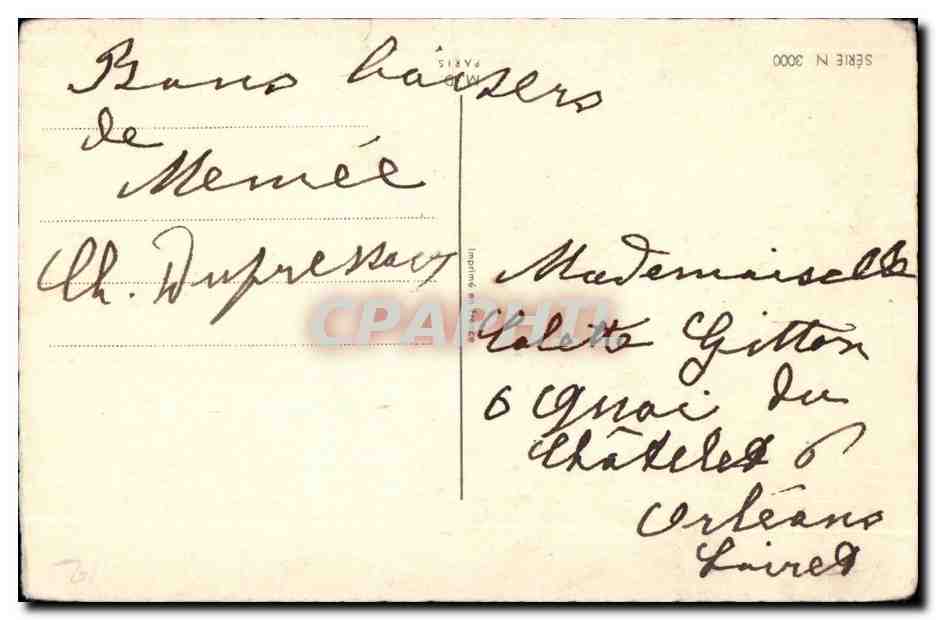 Bons baisers
de
Memée
Ch. Dupressoir
M.D.
PARIS
SÉRIE N 3000
Imprimé en France
CPARHTI
Mademoiselle
Colette Gitton
6 Quai du
Châtelet 6
Orléans
Loiret